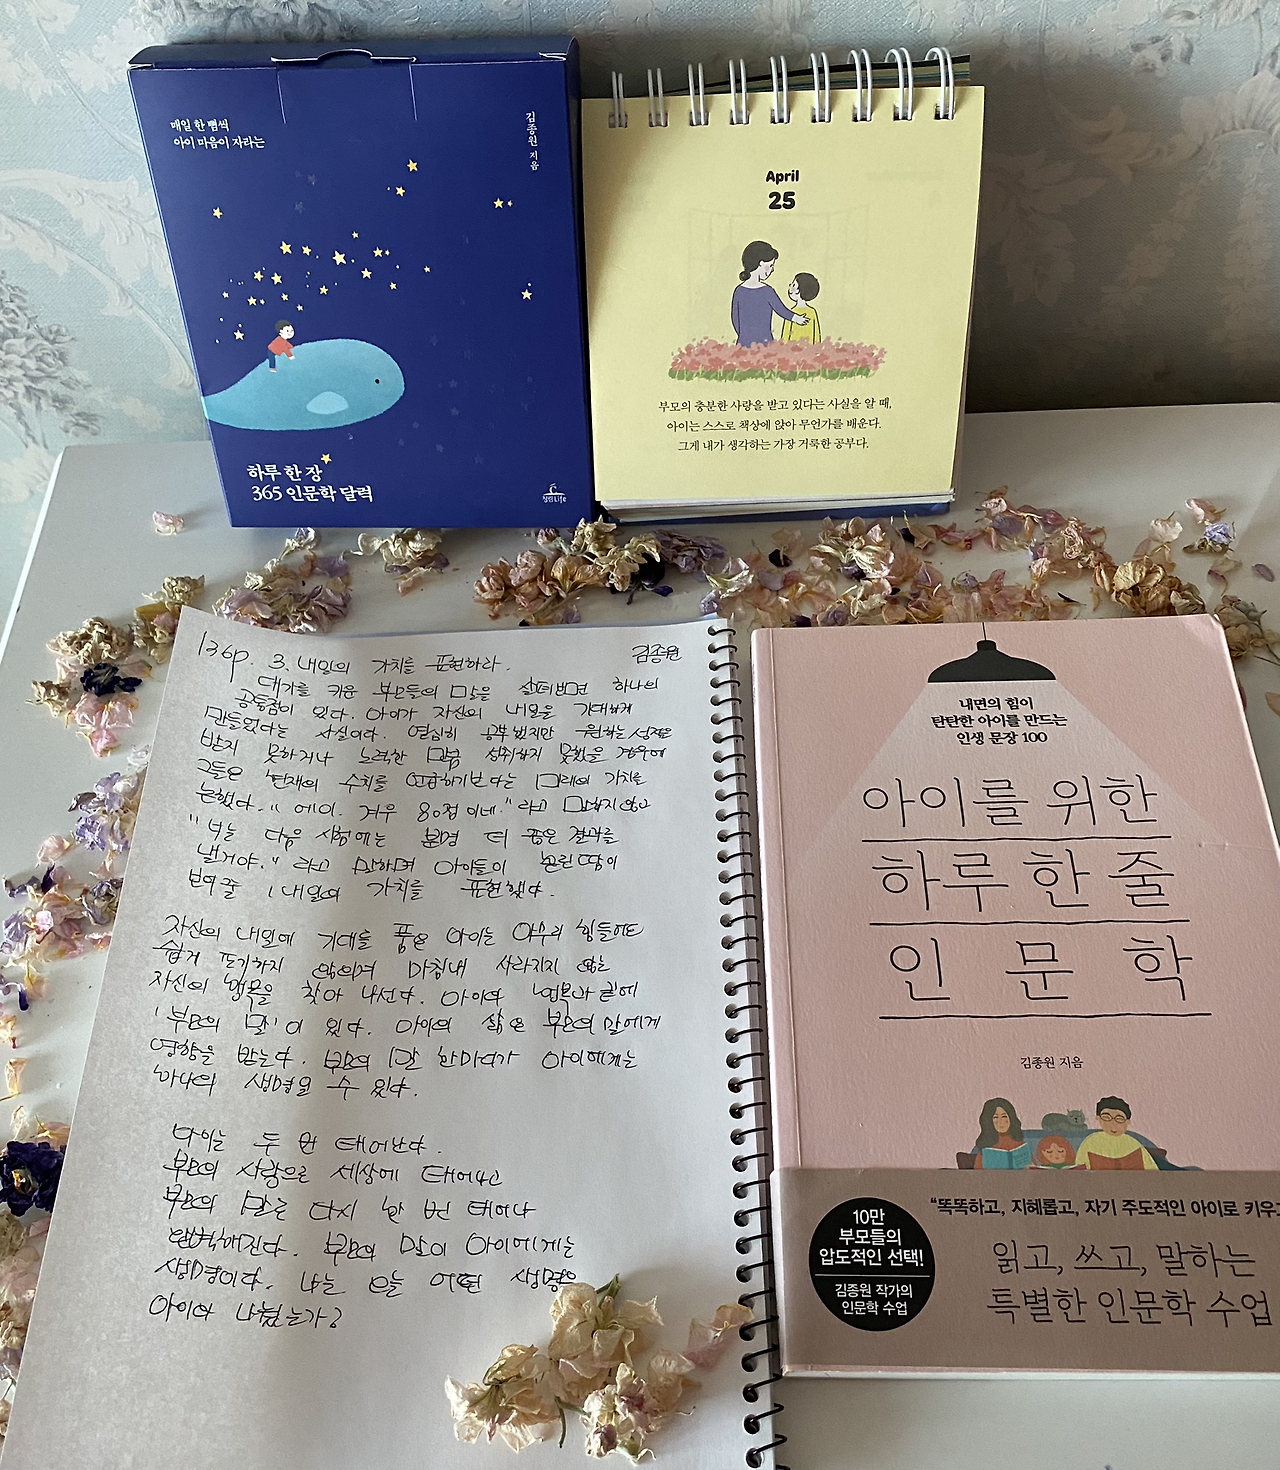 매일 한 뼘씩
아이 마음이 자라는
김종원 지음
하루 한 장
365 인문학 달력
청림Life
April
25
부모의 충분한 사랑을 받고 있다는 사실을 알 때,
아이는 스스로 책상에 앉아 무언가를 배운다.
그게 내가 생각하는 가장 거룩한 공부다.
136p. 3. 내일의 가치를 표현하라. 김종원
대가를 키운 부모들의 말을 살펴보면 하나의
공통점이 있다. 아이가 자신의 내일을 기대하게
만들었다는 사실이다. 열심히 공부했지만 원하는 성적을
받지 못하거나 노력한 만큼 성취하지 못했을 경우에
그들은 현재의 수치를 언급하기보다는 미래의 가치를
논했다. "에이. 겨우 80점이네." 라고 말하지 않고
"너는 다음 시험에는 분명 더 좋은 결과를
낼거야." 라고 말하며 아이들이 흘린 땀이
보여줄 내일의 가치를 표현했다.
자신의 내일에 기대를 품은 아이는 아무리 힘들어도
쉽게 포기하지 않으며 마침내 사라지지 않는
자신의 행복을 찾아 나선다. 아이의 행복의 끝에
'부모의 말'이 있다. 아이의 삶은 부모의 말에게
영향을 받는다. 부모의 말 한마디가 아이에게는
하나의 생명일 수 있다.
아이는 두 번 태어난다.
부모의 사랑으로 세상에 태어나고
부모의 말로 다시 한 번 태어나
완벽해진다. 부모의 말이 아이에게는
생명이다. 나는 오늘 어떤 생명을
아이와 나눴는가?
내면의 힘이
탄탄한 아이를 만드는
인생 문장 100
아이를 위한
하루 한 줄
인문학
김종원 지음
10만
부모들의
압도적인 선택!
김종원 작가의
인문학 수업
"똑똑하고, 지혜롭고, 자기 주도적인 아이로 키우고
읽고, 쓰고, 말하는
특별한 인문학 수업